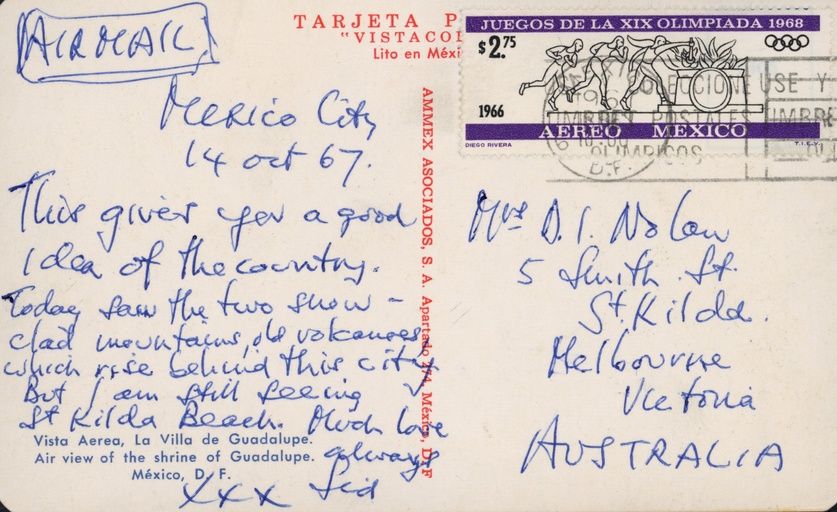 AIRMAIL
TARJETA P
"VISTACOL
Lito en Méxi
JUEGOS DE LA XIX OLIMPIADA 1968
$2.75
1966
AEREO MEXICO
DIEGO RIVERA
T.I.E.V.
COLECCIONE USE Y
TIMBRES POSTALES
OLIMPICOS
D.F.
Mexico City
14 Oct 67.
This gives you a good
idea of the country.
Today saw the two snow-
clad mountains, old volcanoes,
which rise behind this city
But I am still seeing
St Kilda Beach. Much love
always
xxx Sid
Vista Aerea, La Villa de Guadalupe.
Air view of the shrine of Guadalupe.
México, D. F.
AMMEX ASOCIADOS, S. A. Apartado 274, México, D. F.
Mrs D. I. Nolan
5 Smith St.
St. Kilda.
Melbourne
Victoria
AUSTRALIA